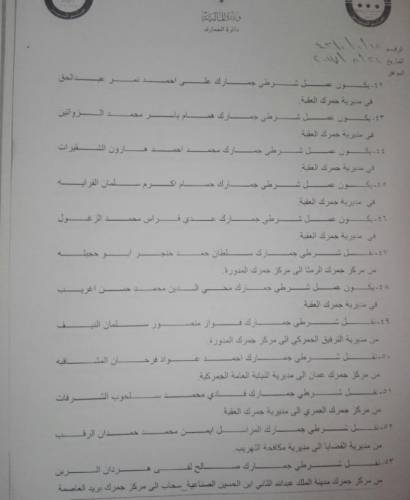 وزارة المالية
دائرة الجمارك
الرقم
التاريخ
الموافق
٤٢- يكون عمل شرطي جمارك علي احمد نمر عبدالحق
في مديرية جمرك العقبة.
٤٣- يكون عمل شرطي جمارك همام ياسر محمد الزواتين
في مديرية جمرك العقبة.
٤٤- يكون عمل شرطي جمارك محمد احمد هارون الشقيرات
في مديرية جمرك العقبة.
٤٥- يكون عمل شرطي جمارك حسام اكرم سلمان القرايه
في مديرية جمرك العقبة.
٤٦- يكون عمل شرطي جمارك عدي فراس محمد الزغول
في مديرية جمرك العقبة.
٤٧- نقل شرطي جمارك سلطان حمد خنجر ابو حجيله
من مركز جمرك الرمثا الى مركز جمرك المدورة.
٤٨- يكون عمل شرطي جمارك محي الدين محمد حسن اغريب
في مديرية جمرك العقبة
٤٩- نقل شرطي جمارك فواز منصور سلمان النيف
من مديرية الترفيق الجمركي الى مركز جمرك المدورة.
٥٠- نقل شرطي جمارك احمد عواد فرحان المشاقبه
من مركز جمرك عمان الى مديرية النيابة العامة الجمركية.
٥١- نقل شرطي جمارك فادي محمد سلحوب الشرفات
من مركز جمرك العمري الى مديرية جمرك العقبة
٥٢- نقل شرطي جمارك المراسل ايمن محمد حمدان الرقب
من مديرية القضايا الى مديرية مكافحة التهريب.
٥٣- نقل شرطي جمارك صالح لفى هردان الزين
من مركز جمرك مدينة الملك عبدالله الثاني ابن الحسين الصناعية _سحاب الى مركز جمرك بريد العاصمة